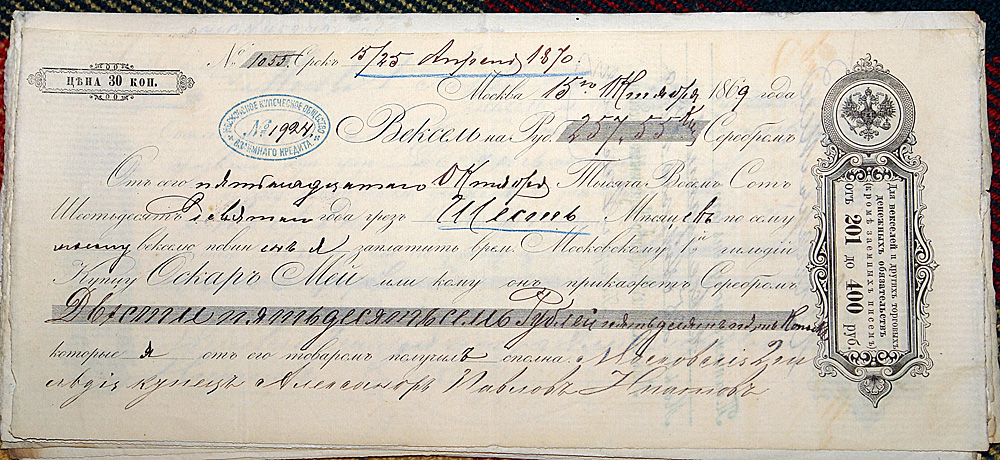 № 1055. Срокъ 15/25 Апреля 1870.
ЦѢНА 30 КОП.
Москва 15го Октября 1869 года
МОСКОВСКОЕ КУПЕЧЕСКОЕ ОБЩЕСТВО
№ 1924
ВЗАИМНАГО КРЕДИТА.
Вексель на Руб. 257,55 Кп Серебромъ
Отъ сего пятьнадцатаго Октября Тысяча Восемъ Сотъ
Шестьдесятъ Девятаго года чрезъ Шесть Мѣсяцевъ по сему
моему векселю повиненъ я заплатить врем. Московскому 1й гильдіи
Купцу Оскаръ Мей или кому онъ прикажетъ Серебромъ
Двѣсти пятьдесятъ семь Рублей пятьдесятъ пять Копѣекъ
которые я отъ его товаромъ получилъ сполна. Московскій 2й ги
льдіи купецъ Александръ Павловъ
Для векселей и другихъ торговыхъ
денежныхъ обязательствъ
(кромѣ заемныхъ писемъ)
отъ 201 до 400 руб.